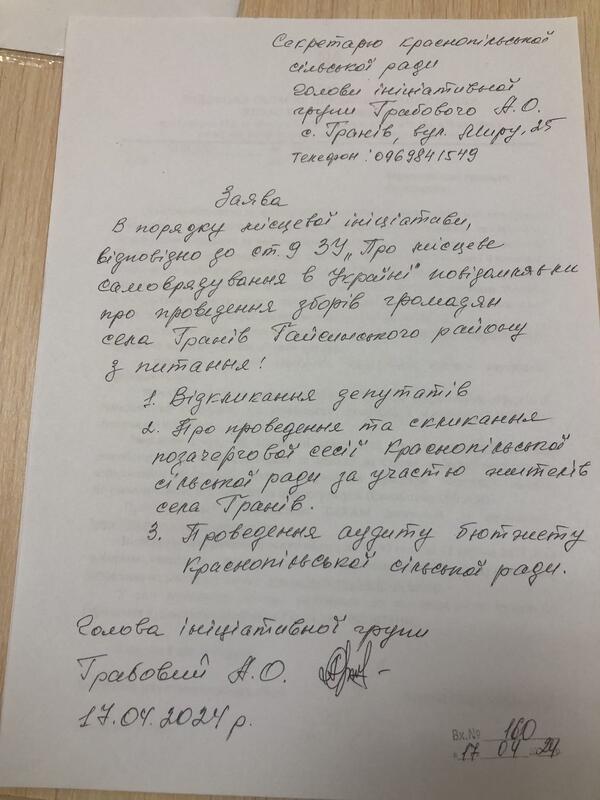 Секретарю Краснопільської
сільської ради
Голови ініціативної
групи Грабового А.О.
с. Гранів, вул. Миру, 25
Телефон: 0969841549
Заява
В порядку місцевої ініціативи,
відповідно до ст. 9 ЗУ „Про місцеве
самоврядування в Україні" повідомляємо
про проведення зборів громадян
села Гранів Гайсинського району
з питання:
1. Відкликання депутатів
2. Про проведення та скликання
позачергової сесії Краснопільської
сільської ради за участю жителів
села Гранів.
3. Проведення аудиту бютжету
Краснопільської сільської ради.
Голова ініціативної групи
Грабовий А.О.
17.04.2024 р.
Вх.№ 160
17 04 24